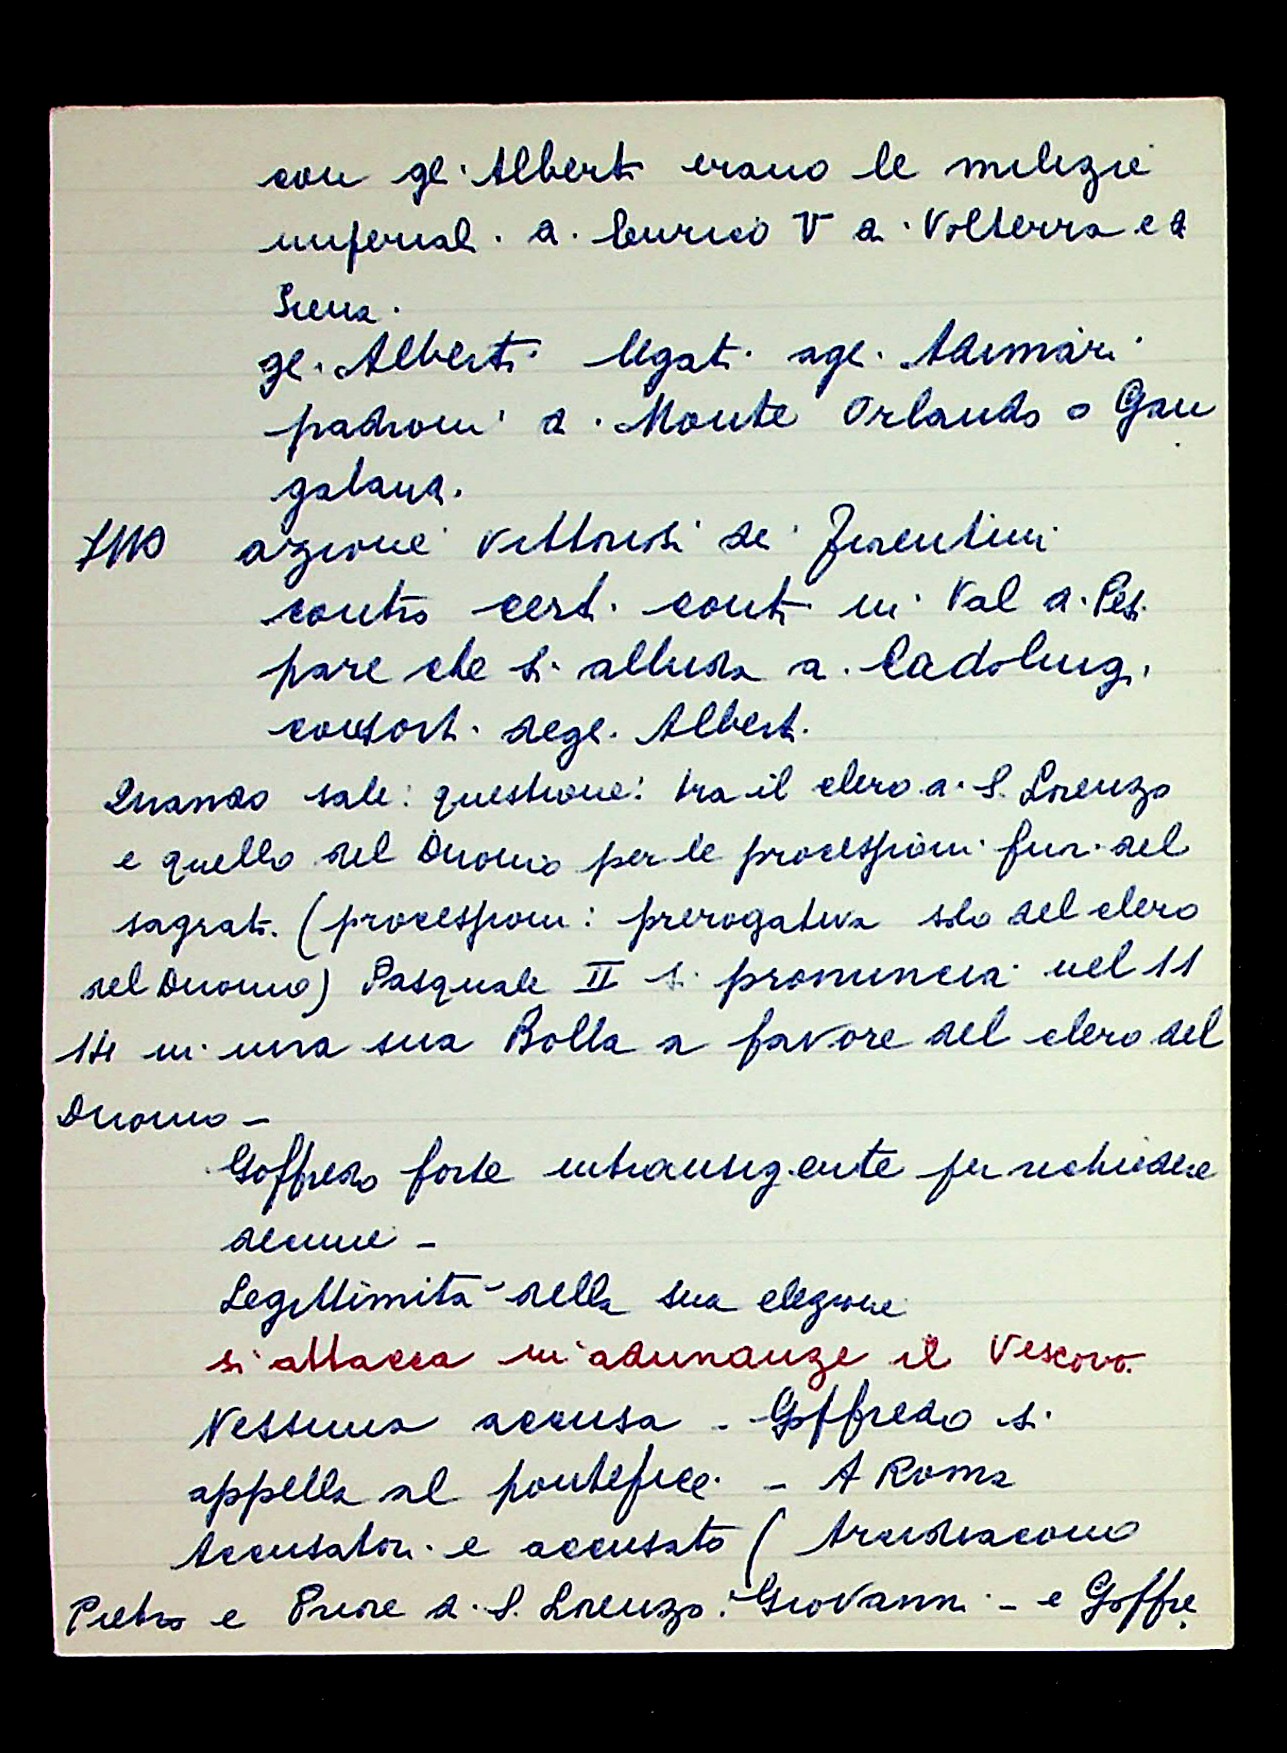 con gli Alberti erano le milizie
imperiali di Enrico V di Volterra e di
Siena.
gli Alberti legati agli Adimari
padroni di Monte Orlando o Gan
galandi.
1110 azione vittoriosi dei Fiorentini
contro certi conti in Val di Pesa
pare che si alluda ai Cadolingi,
consorti degli Alberti.
Quando sale: questione: tra il clero di S. Lorenzo
e quello del Duomo per le processioni fun. del
sagrato. (processioni: prerogativa solo del clero
del Duomo) Pasquale II si pronuncia nel 11
in una sua Bolla a favore del clero del
Duomo -
Goffredo forse intransigente per richiedere
decime -
Legittimità della sua elezione
si attacca in adunanze il Vescovo.
Nessuna accusa - Goffredo si
appella al pontefice. - A Roma
Accusatori e accusato (Arcidiacono
Pietro e Priore di S. Lorenzo: Giovanni - e Goffre